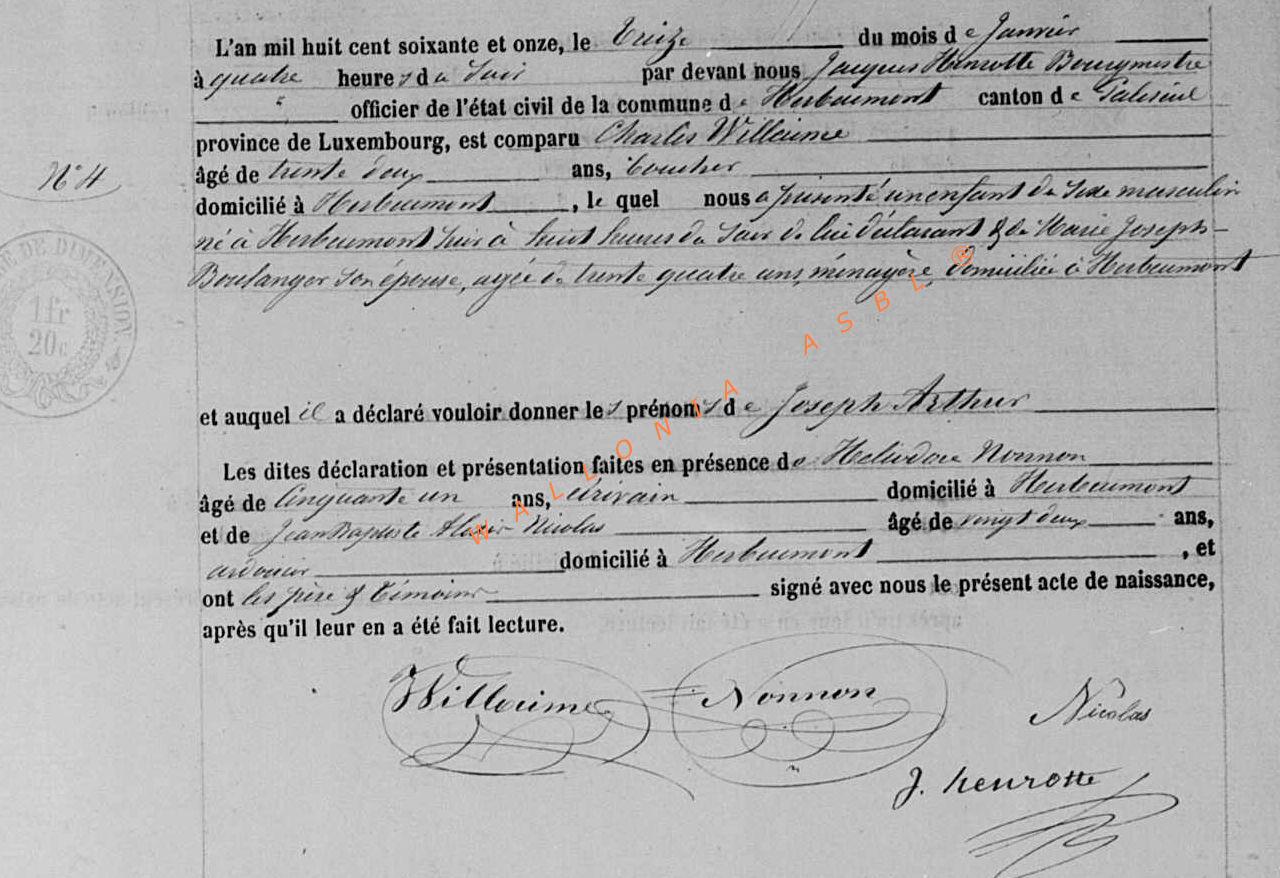 L'an mil huit cent soixante et onze, le treize du mois de Janvier
à quatre heures du Soir par devant nous Jacques Henrotte Bourgmestre
officier de l'état civil de la commune de Herbeumont canton de Paliseul
province de Luxembourg, est comparu Charles Willaime
âgé de trente deux ans, boucher
N° 4
domicilié à Herbeumont, le quel nous a présenté un enfant du Sexe masculin
né à Herbeumont hier à huit heures du Soir de lui déclarant & de Marie Joseph
Boulanger son épouse, agée de trente quatre ans, ménagère domiciliée à Herbeumont
DE DIMENSION
1fr
20c
et auquel il a déclaré vouloir donner les prénoms de Joseph Arthur
WALLONIA ASBL ®
Les dites déclaration et présentation faites en présence de Heliodore Nonnon
âgé de Cinquante un ans, écrivain domicilié à Herbeumont
et de Jean Baptiste Nicolas âgé de vingt deux ans,
ardoisier domicilié à Herbeumont, et
ont les père & témoins signé avec nous le présent acte de naissance,
après qu'il leur en a été fait lecture.
Willaime Nonnon Nicolas
J. henrotte